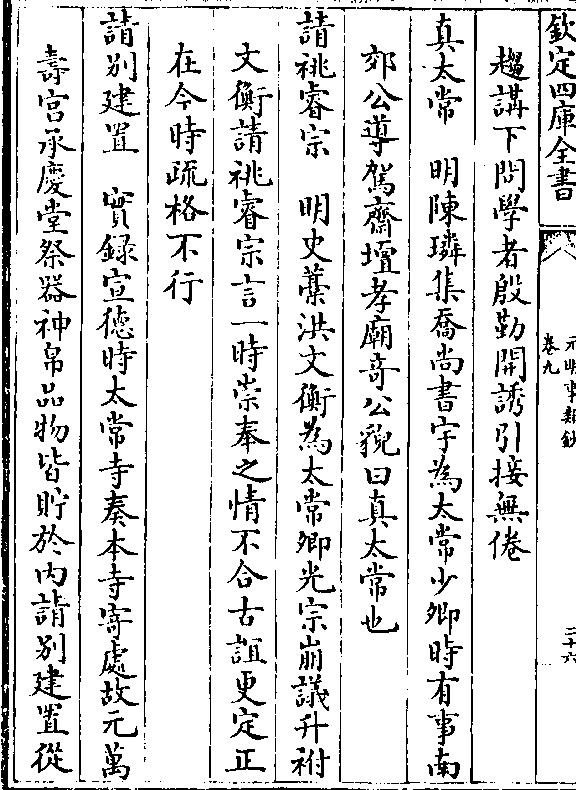 欽定四庫全書
元明事類鈔
卷九
三十六
趨講下問學者殷勤開誘引接無倦
真太常　明陳璘集喬尚書宇為太常少卿時有事南
郊公導駕齋壇孝廟竒公貌曰真太常也
請祧睿宗　明史藳洪文衡為太常卿光宗崩議升祔
文衡請祧睿宗言一時崇奉之情不合古誼更定正
在今時疏格不行
請别建置　實録宣德時太常寺奏本寺寄處故元萬
夀宫承慶堂祭器神帛品物皆貯於内請别建置從